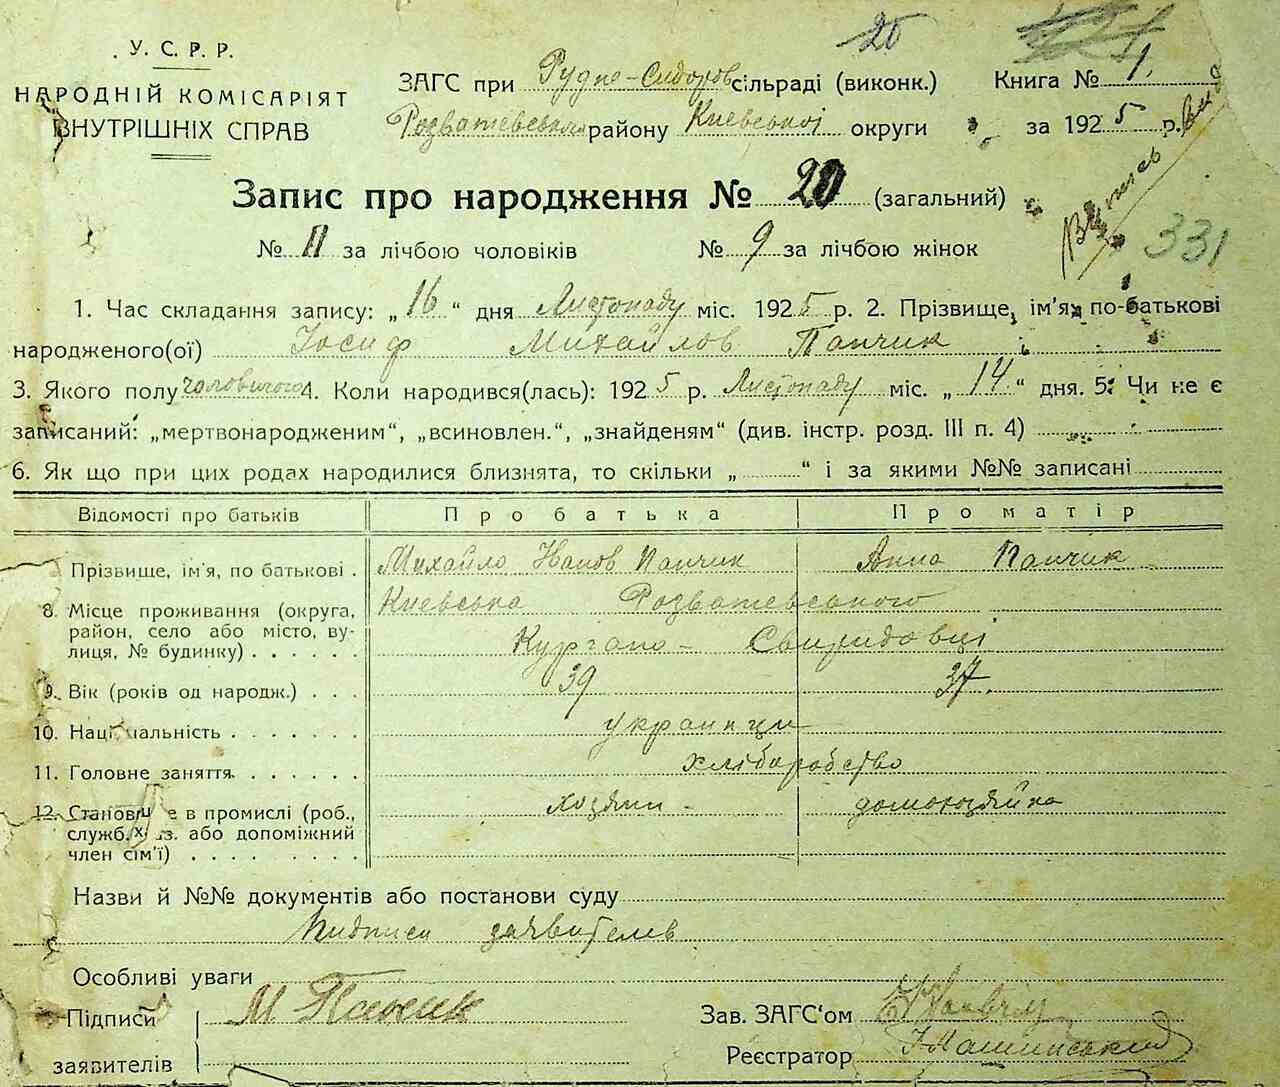 20
У. С. Р. Р.
НАРОДНІЙ КОМІСАРІЯТ
ВНУТРІШНІХ СПРАВ
ЗАГС при Рудне-Сидоров сільраді (виконк.) Книга № 1.
Розважевського району Киевської округи за 1925 р.
Запис про народження № 20 (загальний)
№ 11 за лічбою чоловіків № 9 за лічбою жінок
331
1. Час складання запису: „16“ дня Листопаду міс. 1925 р. 2. Прізвище, ім'я, по-батькові
народженого(ої) Іосиф Михайлов Панчик
3. Якого полу чоловичого 4. Коли народився(лась): 1925 р. Листопаду міс. „14“ дня. 5. Чи не є
записаний: „мертвонародженим“, „всиновлен.“, „знайденям“ (див. інстр. розд. III п. 4)
6. Як що при цих родах народилися близнята, то скільки „ “ і за якими №№ записані
Відомості про батьків Про батька Про матір
Прізвище, ім'я, по батькові . Михайло Иванов Панчик Анна Панчик
8. Місце проживання (округа, Киевська Розважевського
район, село або місто, ву-
лиця, № будинку) . . . . . .
9. Вік (років од народж.) . . . 39 37.
10. Національність . . . . . . . украинци
11. Головне заняття. . . . . . . хліборобство
12. Становище в промислі (роб., хозяин - домохозяйка
служб., хаз. або допоміжний
член сім'ї) . . . . . . . . .
Назви й №№ документів або постанови суду
Пидписи заявителев
Особливі уваги
Підписи М Панчик Зав. ЗАГС'ом
заявителів Реєстратор